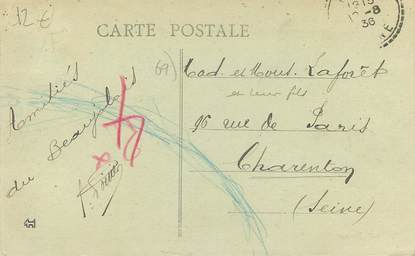 12 €
CARTE POSTALE
8
36
(69)
Amitiés
du Beaujolais
Mad. et Mons. Laforêt
et leur fils
96 rue de Paris
Charenton
(Seine)